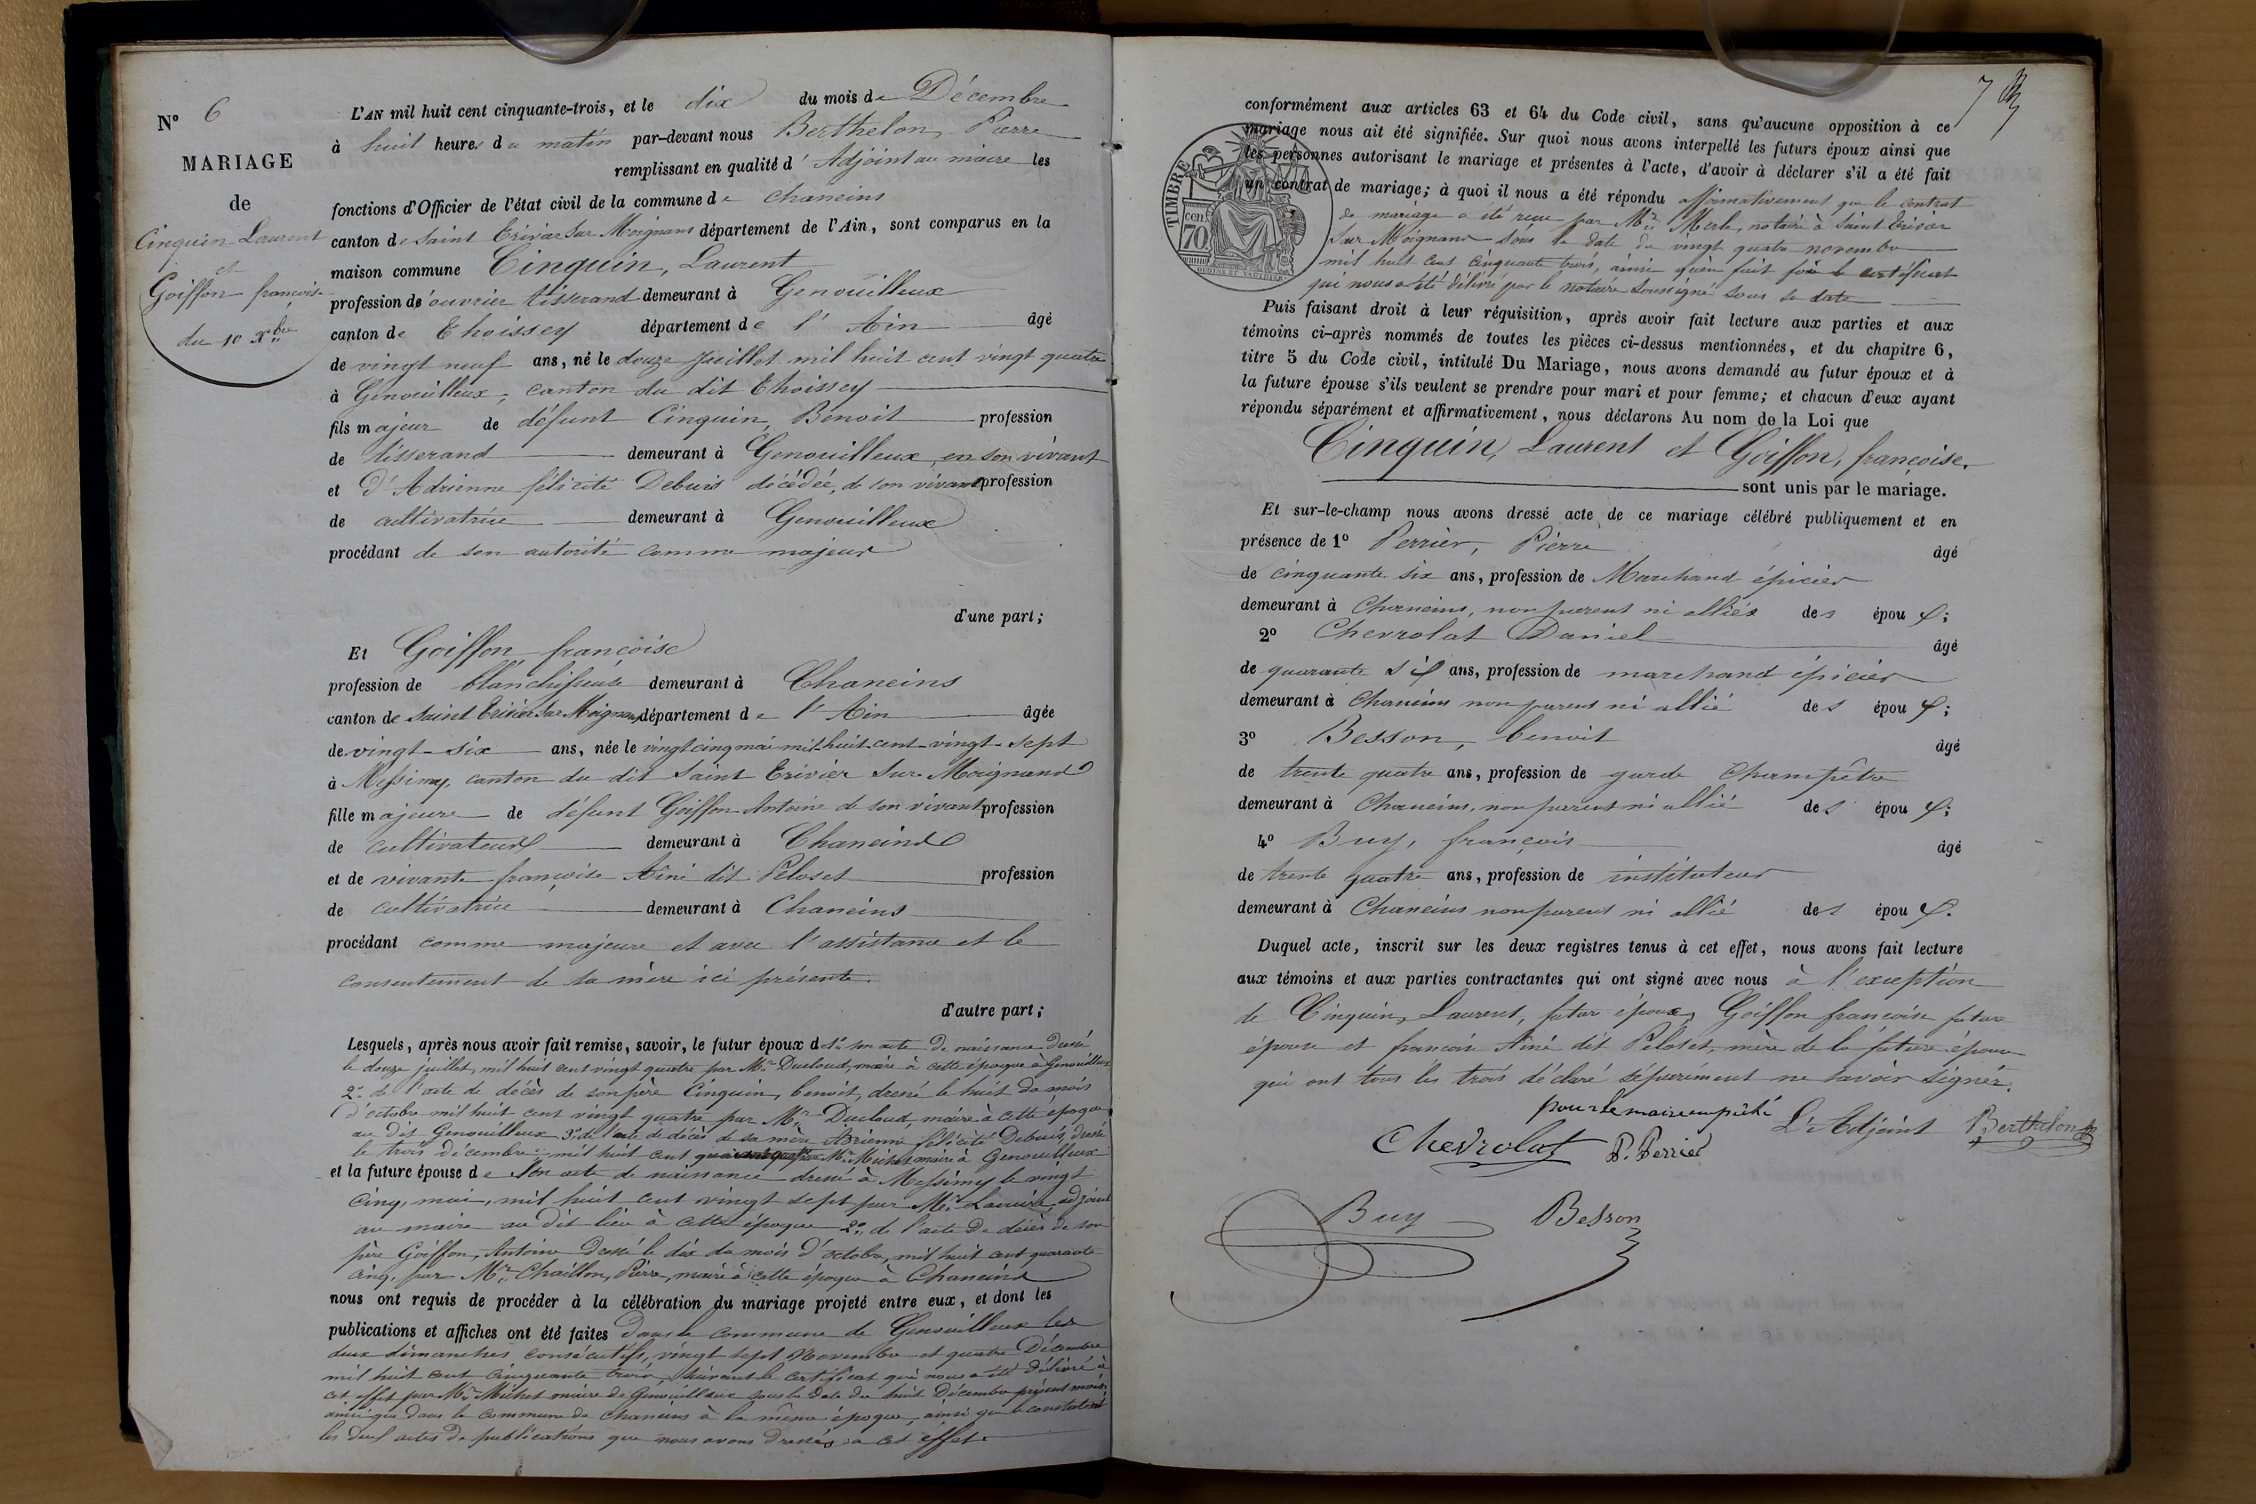 N° 6
MARIAGE
de
Cinquin Laurent
et
Goiffon françoise
du 10 Xbre
L'AN mil huit cent cinquante-trois, et le dix du mois de Décembre
à huit heures du matin par-devant nous Berthelon, Pierre
remplissant en qualité d'Adjoint au maire les
fonctions d'Officier de l'état civil de la commune de Chaneins
canton de Saint Trivier Sur Moignans département de l'Ain, sont comparus en la
maison commune Cinquin, Laurent
profession d'ouvrier tisserand demeurant à Genouilleux
canton de Thoissey département de l'Ain âgé
de vingt neuf ans, né le douze juillet mil huit cent vingt quatre
à Genouilleux, canton du dit Thoissey
fils majeur de défunt Cinquin, Benoit profession
de tisserand demeurant à Genouilleux, en son vivant
et d'Adrienne félicité Debuis décédée, de son vivant profession
de cultivatrice demeurant à Genouilleux
procédant de son autorité comme majeur
d'une part;
Et Goiffon françoise
profession de blanchisseuse demeurant à Chaneins
canton de Saint Trivier Sur Moignans département de l'Ain âgée
de vingt-six ans, née le vingt cinq mai mil huit cent vingt-sept
à Messimy, canton du dit Saint Trivier Sur Moignans
fille majeure de défunt Goiffon Antoine de son vivant profession
de cultivateur demeurant à Chaneins
et de vivante françoise Ainé dit Peloset profession
de cultivatrice demeurant à Chaneins
procédant comme majeure et avec l'assistance et le
consentement de sa mère ici présente.
d'autre part;
Lesquels, après nous avoir fait remise, savoir, le futur époux de 1° son acte de naissance dressé
le douze juillet, mil huit cent vingt quatre par Mr Ducloud, maire à cette époque à Genouilleux
2° de l'acte de décès de son père Cinquin, benoit, dressé le huit du mois
d'octobre mil huit cent vingt quatre par Mr Ducloud, maire à cette époque
au dit Genouilleux 3° de l'acte de décès de sa mère Adrienne félicité Debuis, dressé
le trois décembre mil huit cent par Mr Michet maire à Genouilleux
et la future épouse de Son acte de naissance dressé à Messimy le vingt
cinq, mai, mil huit cent vingt sept par Mr adjoint
au maire au dit lieu à cette époque 2° de l'acte de décès de son
père Goiffon, Antoine dressé le dix du mois d'octobre, mil huit cent quarante
cinq, par Mr Chaillon, Pierre, maire à cette époque à Chaneins
nous ont requis de procéder à la célébration du mariage projeté entre eux, et dont les
publications et affiches ont été faites dans la commune de Genouilleux les
deux dimanches consécutifs, vingt sept Novembre et quatre Décembre
mil huit cent cinquante trois, suivant le certificat qui nous a été délivré à
cet effet par Mr Michet maire de Genouilleux sous la date du huit Décembre présent mois,
ainsi que dans la commune de Chaneins à la même époque, ainsi que le constatent
les deux actes de publications que nous avons dressés à cet effet.
7
TIMBRE
70 cen.
conformément aux articles 63 et 64 du Code civil, sans qu'aucune opposition à ce
mariage nous ait été signifiée. Sur quoi nous avons interpellé les futurs époux ainsi que
les personnes autorisant le mariage et présentes à l'acte, d'avoir à déclarer s'il a été fait
un contrat de mariage; à quoi il nous a été répondu affirmativement que le contrat
de mariage a été reçu par Mr Merle, notaire à Saint Trivier
sur Moignans sous la date du vingt quatre novembre
mil huit cent cinquante trois, ainsi qu'en fait foi le certificat
qui nous a été délivré par le notaire soussigné sous sa date
Puis faisant droit à leur réquisition, après avoir fait lecture aux parties et aux
témoins ci-après nommés de toutes les pièces ci-dessus mentionnées, et du chapitre 6,
titre 5 du Code civil, intitulé Du Mariage, nous avons demandé au futur époux et à
la future épouse s'ils veulent se prendre pour mari et pour femme; et chacun d'eux ayant
répondu séparément et affirmativement, nous déclarons Au nom de la Loi que
Cinquin, Laurent et Goiffon, françoise.
sont unis par le mariage.
Et sur-le-champ nous avons dressé acte de ce mariage célébré publiquement et en
présence de 1° Perrier, Pierre âgé
de cinquante six ans, profession de Marchand épicier
demeurant à Chaneins, non parent ni alliés des époux;
2° Chevrolat Daniel âgé
de quarante six ans, profession de marchand épicier
demeurant à Chaneins non parent ni allié des époux;
3° Besson, benoit âgé
de trente quatre ans, profession de garde champêtre
demeurant à Chaneins, non parent ni allié des époux;
4° Buy, françois âgé
de trente quatre ans, profession de instituteur
demeurant à Chaneins non parent ni allié des époux.
Duquel acte, inscrit sur les deux registres tenus à cet effet, nous avons fait lecture
aux témoins et aux parties contractantes qui ont signé avec nous à l'exception
de Cinquin, Laurent, futur époux, Goiffon françoise future
épouse et françoise Ainé dit Peloset, mère de la future épouse
qui ont tous les trois déclaré séparément ne savoir signer.
pour le maire empêché
L'Adjoint Berthelon
Chevrolat P. Perrier
Buy Besson